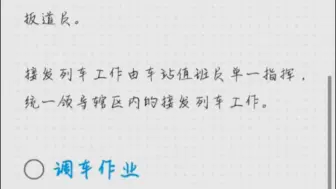 扳道员。
接发列车工作由车站值班员单一指挥，
统一领导辖区内的接发列车工作。
调车作业